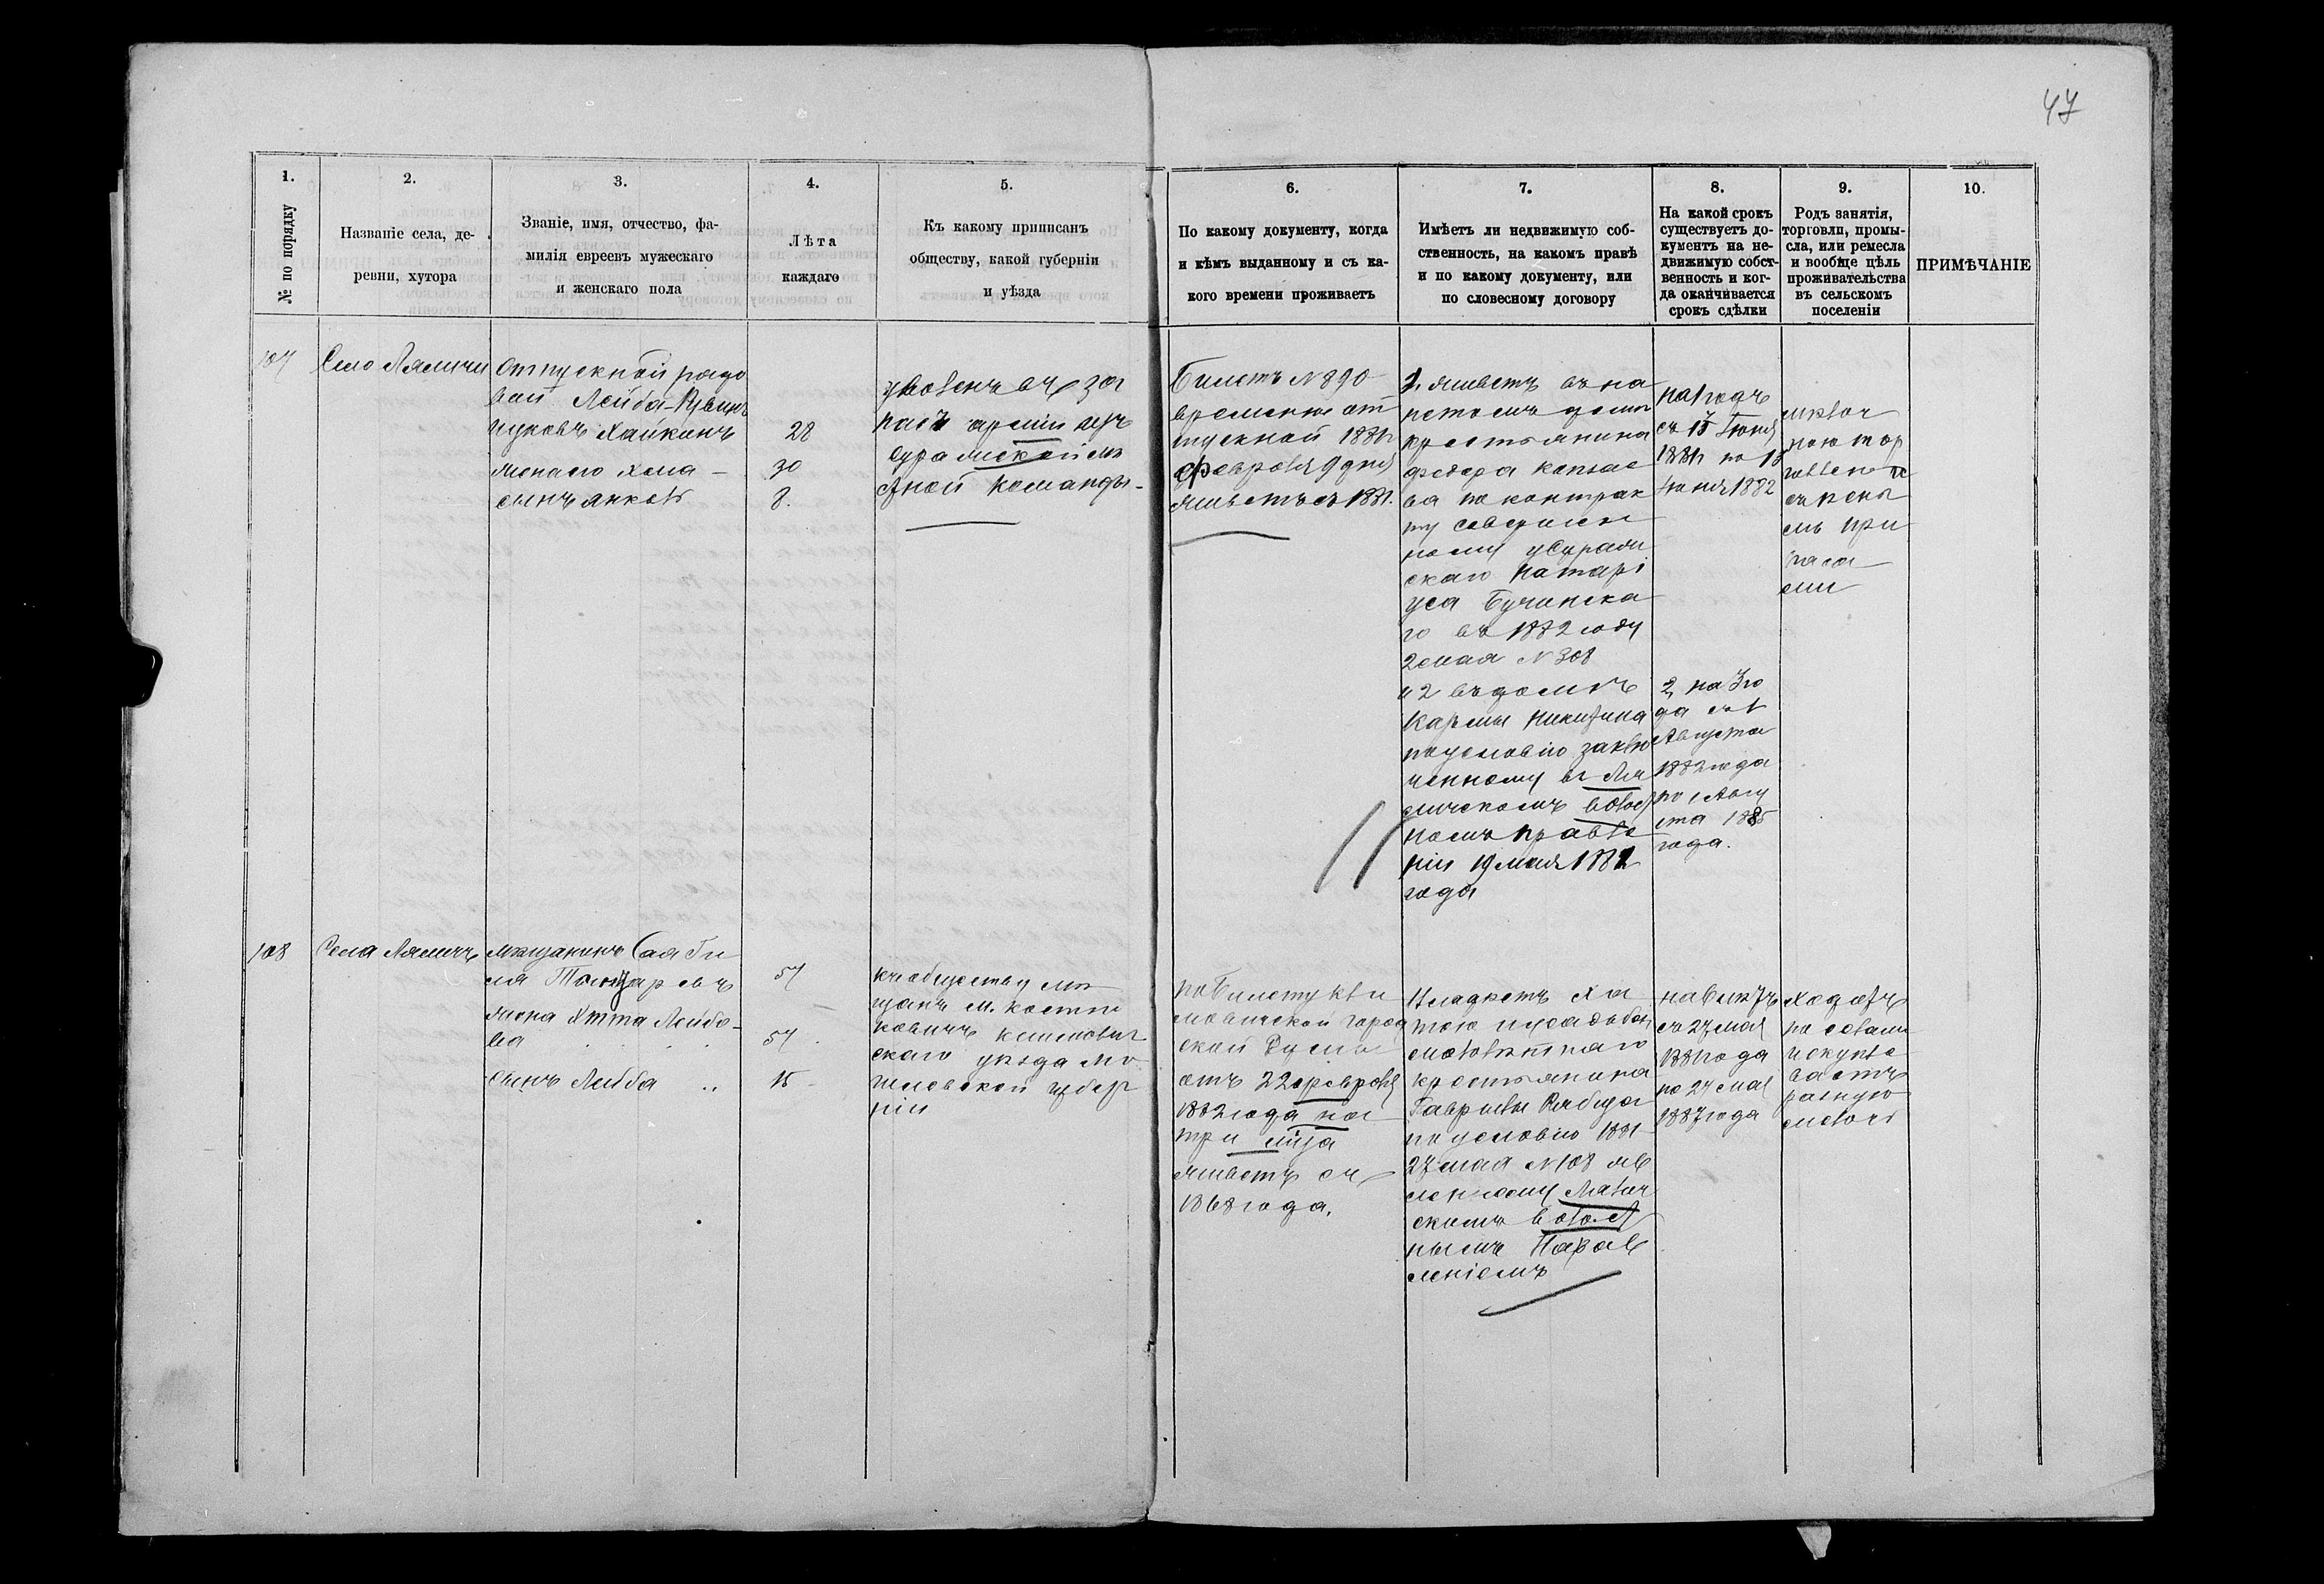 47
1.
№ по порядку
2.
Названіе села, де-
ревни, хутора
3.
Званіе, имя, отчество, фа-
милія евреевъ мужескаго
и женскаго пола
4.
Лѣта
каждаго
5.
Къ какому приписанъ
обществу, какой губерніи
и уѣзда
6.
По какому документу, когда
и кѣмъ выданному и съ ка-
кого времени проживаетъ
7.
Имѣетъ ли недвижимую соб-
ственность, на какомъ правѣ
и по какому документу, или
по словесному договору
8.
На какой срокъ
существуетъ до-
кументъ на не-
движимую собст-
венность и ког-
да оканчивается
срокъ сдѣлки
9.
Родъ занятія,
торговли, промы-
сла, или ремесла
и вообще цѣль
проживательства
въ сельскомъ
поселеніи
10.
ПРИМѢЧАНІЕ
107
Село Ляличи
Отпускной рядо
вой Лейба-
Хайкинъ
жена его Хана —
сынъ Янкель
28
30
8.
уволенъ въ за
пасъ арміи изъ
Суражской мѣ
стной команды.
Билетъ N 890
временно от
пускной 1881 г
февраля 9 дня
живетъ съ 1881.
1. живетъ въ на
нетомъ домѣ
крестьянина
Федора
ва по контрак
ту совершен
ному у Сураж
скаго Натарі
уса Бучинска
го въ 1882 году
2 мая N 308
и 2 въ домѣ
Карпы Никитина
по условію заклю
ченному въ Ля
личскомъ волост
номъ правле
ніи 19 мая 1882
года
на 1 годъ
съ 15 Іюня
1881 г по 15
Іюня 1882
2, на 3 го
да съ 1
Августа
1882 года
по 1 Авгу
ста 1885
года.
мѣлоч
ною тор
говлею
съ
ми при
паса
ми
108
Села Ляличъ
мѣщанинъ
жена Этта Лейбо-
ва
сынъ Лейба ..
57
57
15
къ обществу мѣ
щанъ м. Костю
ковичъ Климович
скаго уѣзда Мо
гилевской губер
ніи
по Билету Кли
мовичской город
ской Думы
отъ 22 февраля
1882 года на
три м-ца
живетъ съ
1868 года.
Владѣетъ ха
тою и усадьбою
крестьянина
Гаврилы Рябца
по условію 1881
27 мая N 108 яв
ленному
скимъ волост
нымъ Правле
леніемъ
съ 27 мая
1881 года
по 27 мая
1887 года
ходатъ
по селамъ
и скупле
ваетъ
разную
мелочь